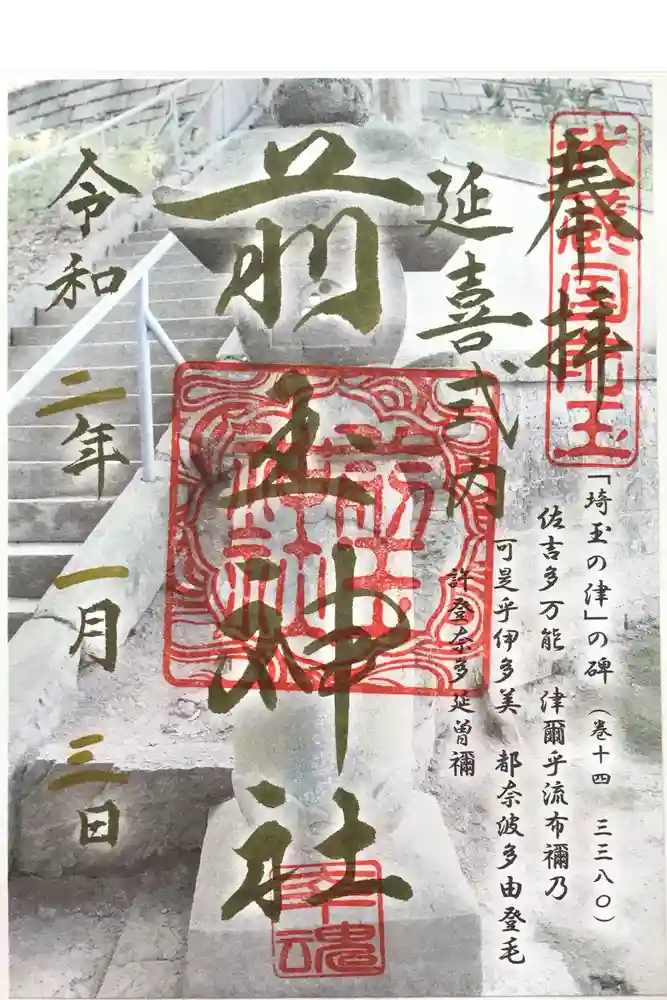 奉拝
武蔵国埼玉
「埼玉の津」の碑 (巻十四 三三八〇)
佐吉多万能 津爾乎流布禰乃
可是乎伊多美 都奈波多由登毛
許登奈多延曽禰
延喜式内
前玉神社
前玉神社
幸魂
令和二年一月三日